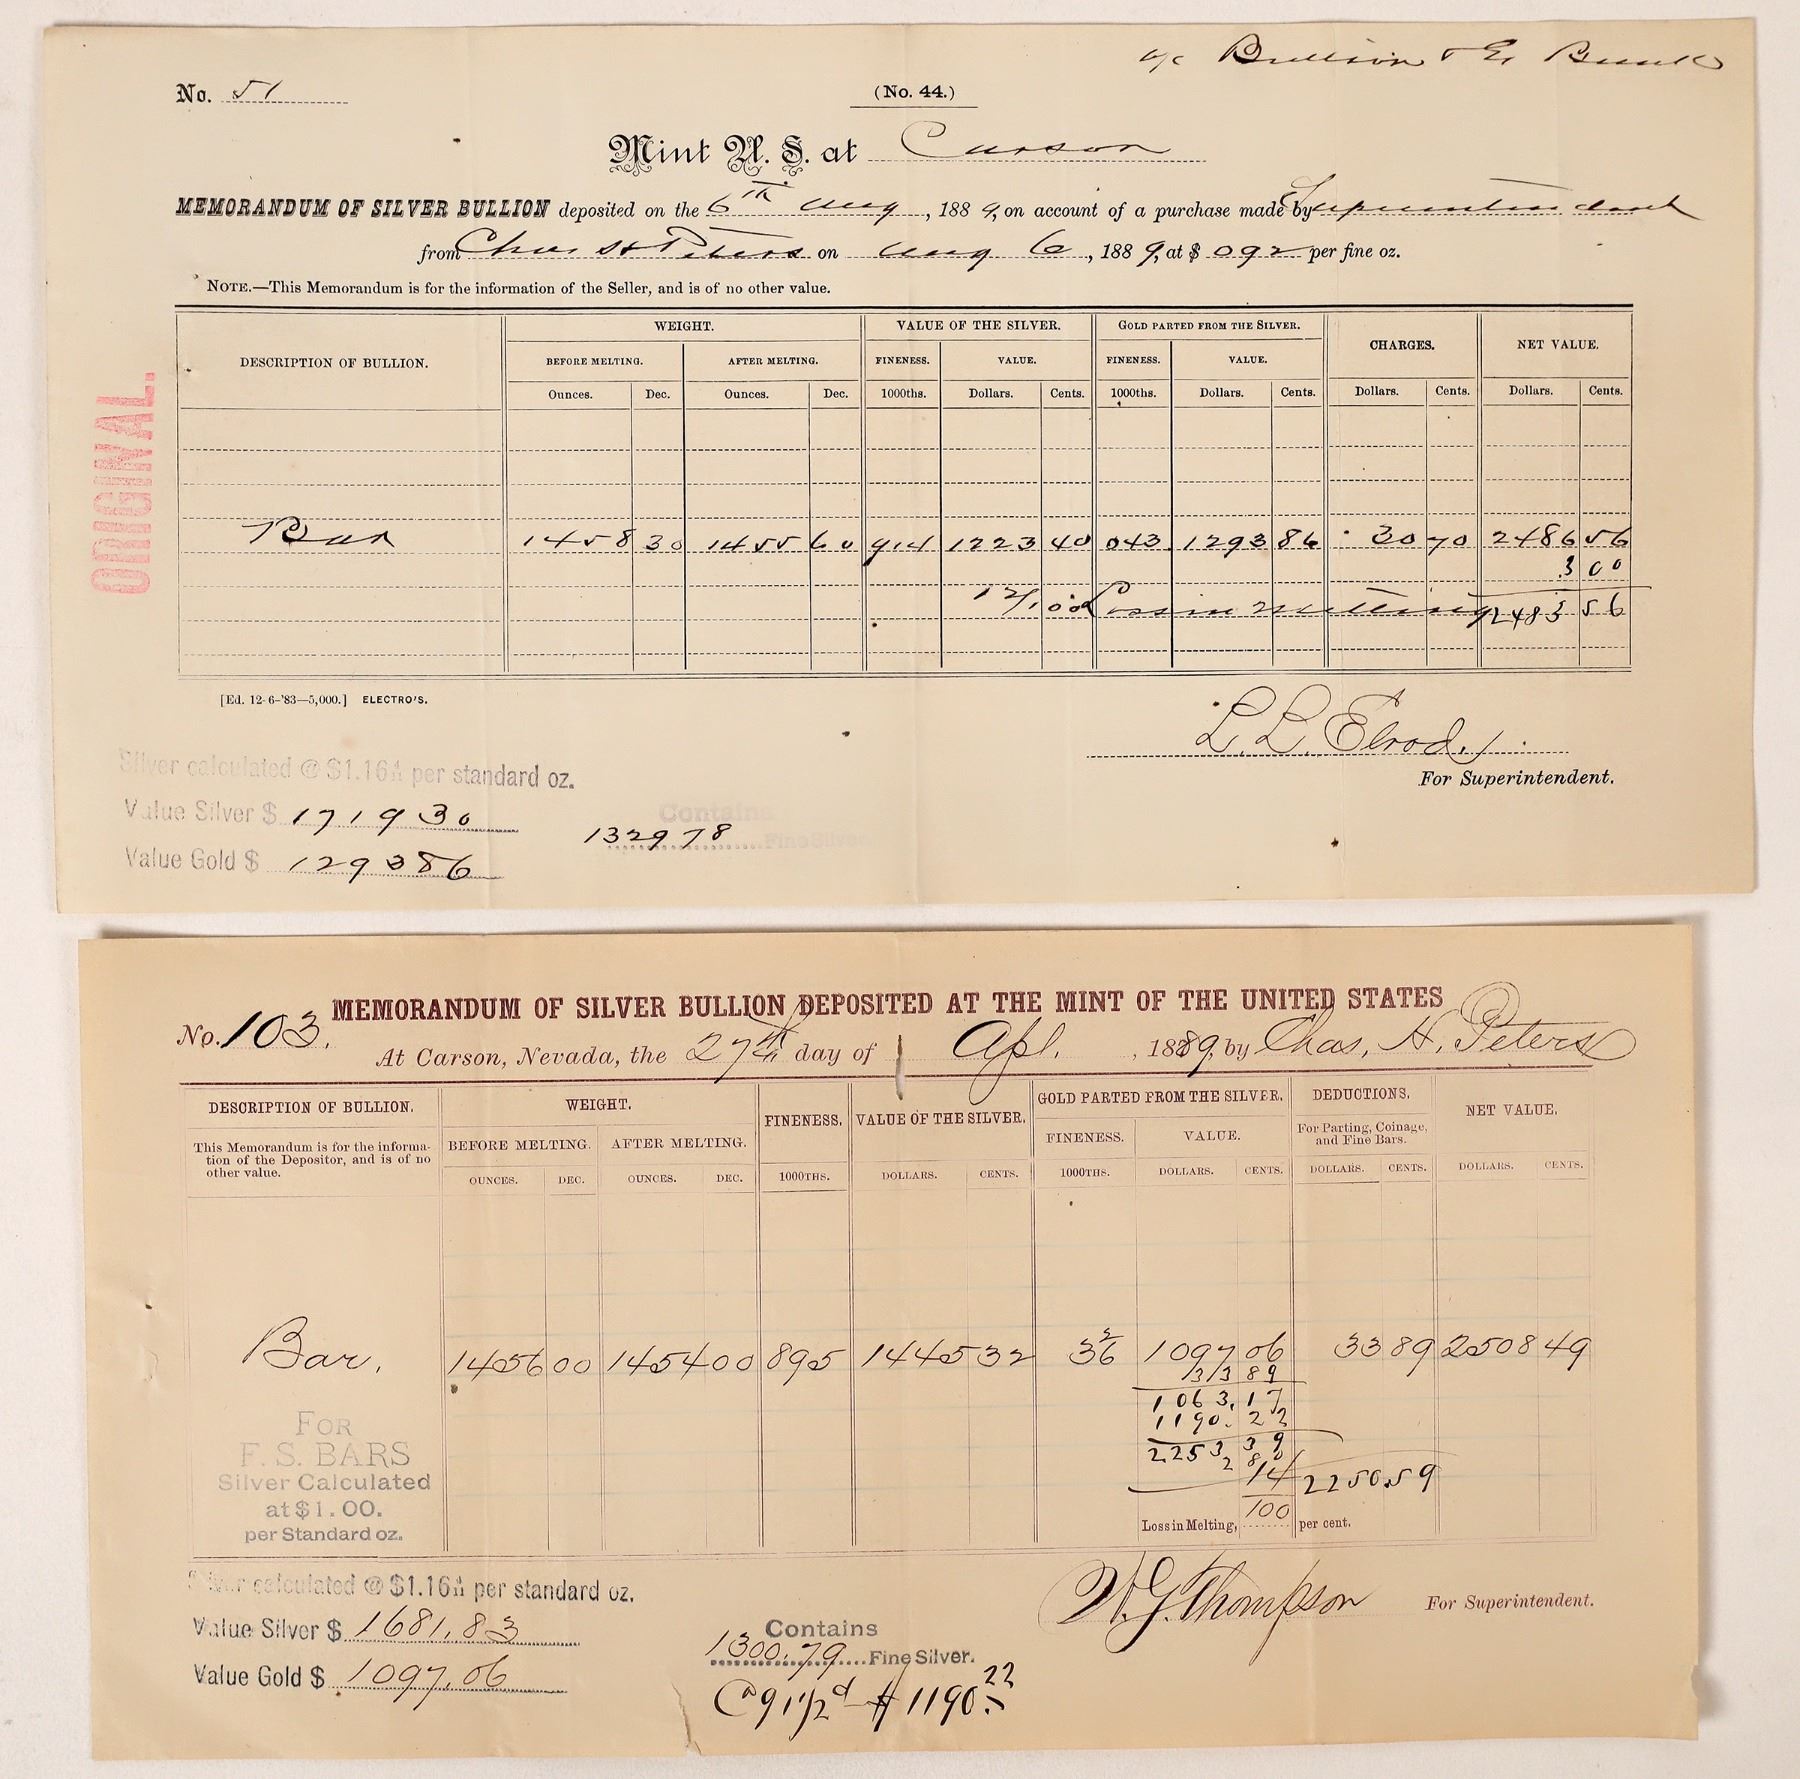 a/c Bullion & Ex Bank
No. 51
(No. 44.)
Mint U. S. at Carson
MEMORANDUM OF SILVER BULLION deposited on the 6th Aug, 1889, on account of a purchase made by Superintendent
from Chas H Peters on Aug 6, 1889, at $ 092 per fine oz.
NOTE.—This Memorandum is for the information of the Seller, and is of no other value.
ORIGINAL.
DESCRIPTION OF BULLION. WEIGHT. VALUE OF THE SILVER. GOLD PARTED FROM THE SILVER. CHARGES. NET VALUE.
BEFORE MELTING. AFTER MELTING. FINENESS. VALUE. FINENESS. VALUE.
Ounces. Dec. Ounces. Dec. 1000ths. Dollars. Cents. 1000ths. Dollars. Cents. Dollars. Cents. Dollars. Cents.
Bar 1458 30 1455 60 914 1223 40 043 1293 86 30 70 2486 56
3 00
Loss in melting 2483 56
[Ed. 12-6-'83—5,000.] ELECTRO'S.
L. L. Elrod
For Superintendent.
Silver calculated @ $1.16 4/11 per standard oz.
Value Silver $ 1719 30
Contains
1329 78 Fine Silver.
Value Gold $ 1293 86
MEMORANDUM OF SILVER BULLION DEPOSITED AT THE MINT OF THE UNITED STATES
No. 103.
At Carson, Nevada, the 27th day of Apl., 1889, by Chas, H. Peters
DESCRIPTION OF BULLION. WEIGHT. FINENESS. VALUE OF THE SILVER. GOLD PARTED FROM THE SILVER. DEDUCTIONS. NET VALUE.
This Memorandum is for the informa-
tion of the Depositor, and is of no
other value.
BEFORE MELTING. AFTER MELTING. FINENESS. VALUE. For Parting, Coinage,
and Fine Bars.
OUNCES. DEC. OUNCES. DEC. 1000THS. DOLLARS. CENTS. 1000THS. DOLLARS. CENTS. DOLLARS. CENTS. DOLLARS. CENTS.
Bar, 1456 00 1454 00 895 1445 32 36 1097 06 33 89 2508 49
33 89
1063.17
1190.22
2253 39
2 80
2250.59
14
100
Loss in Melting, per cent.
FOR
F. S. BARS
Silver Calculated
at $1.00.
per Standard oz.
W. G. Thompson For Superintendent.
Silver calculated @ $1.16 4/11 per standard oz.
Value Silver $ 1681.83
Contains
1300.79 Fine Silver.
Value Gold $ 1097.06
@ 91 1/2 d $1190.22